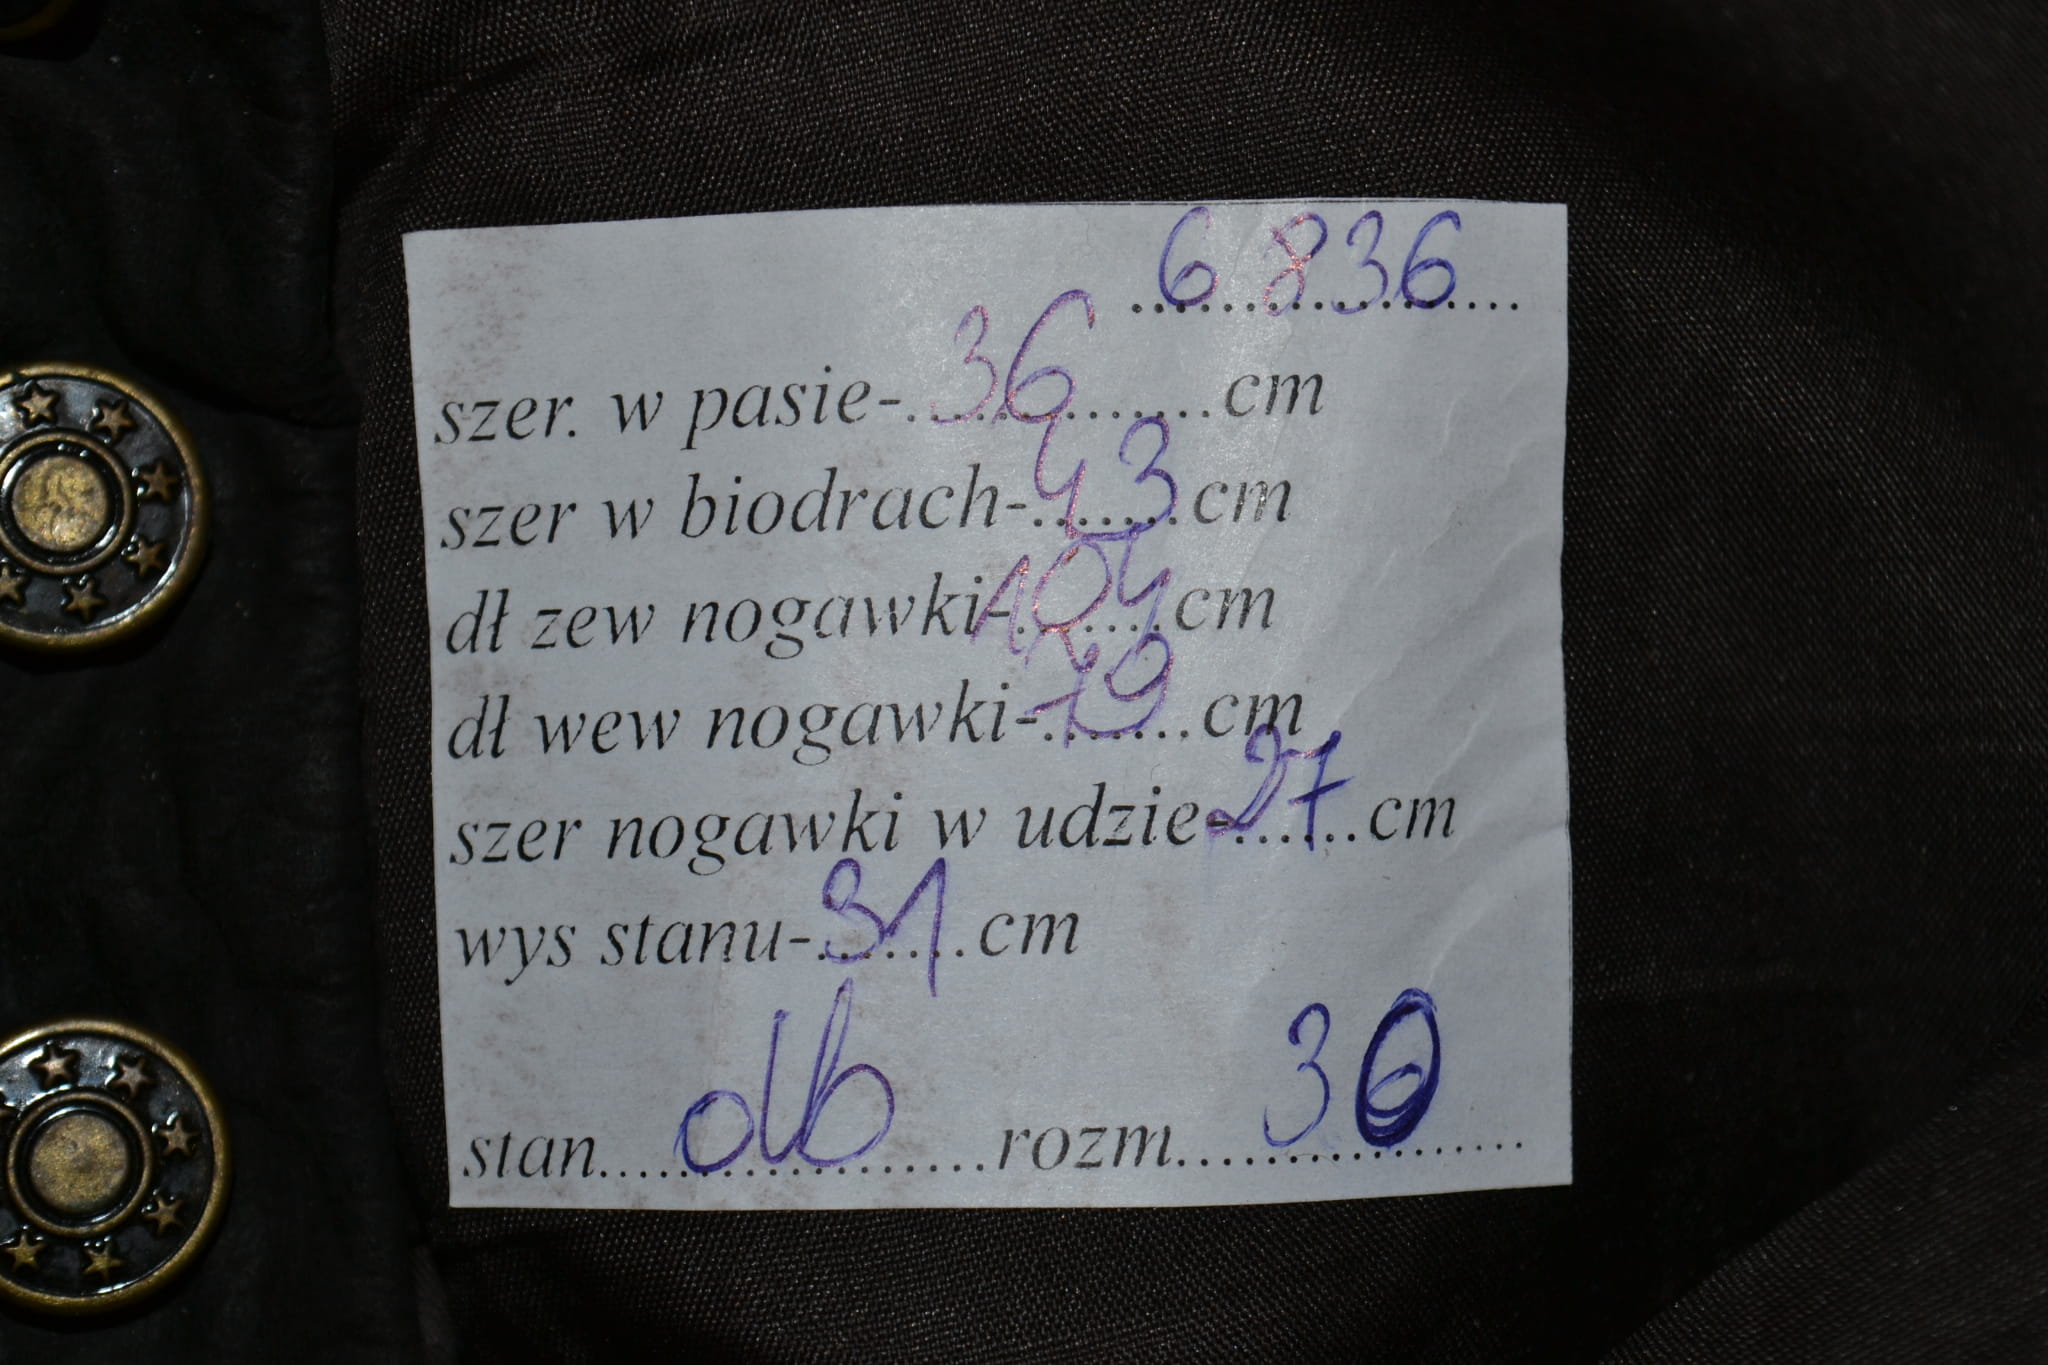 6 836
szer. w pasie-.36............cm
szer w biodrach-.43......cm
dł zew nogawki-104......cm
dł wew nogawki-.79......cm
szer nogawki w udzie-27......cm
wys stanu-.31......cm
stan....db..................rozm.................